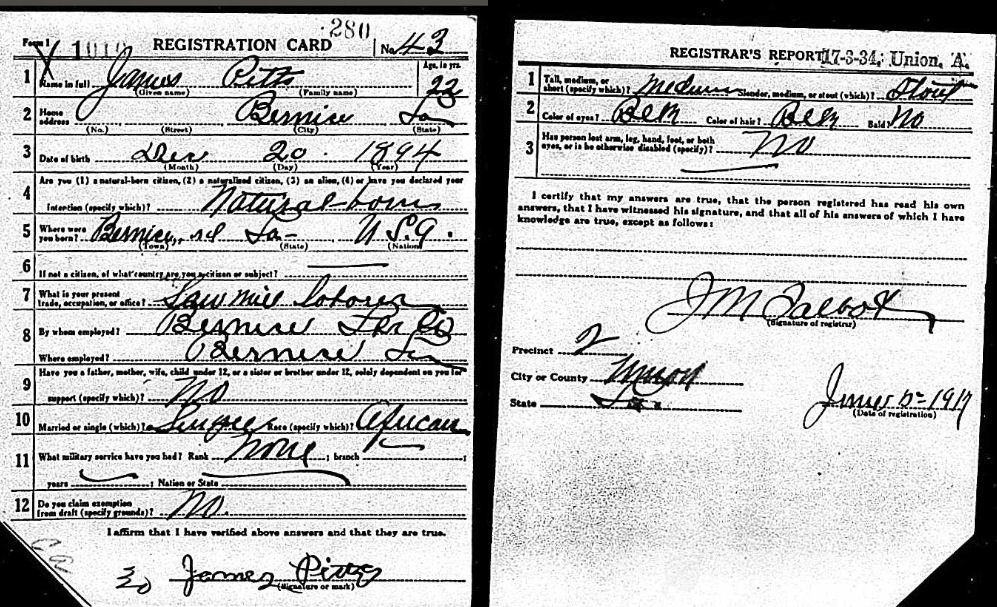 280
Form 1 1010 REGISTRATION CARD No. 43
1 Name in full James Pitts Age, in yrs. 22
(Given name) (Family name)
2 Home address Bernice La
(No.) (Street) (City) (State)
3 Date of birth Dec 20 1894
(Month) (Day) (Year)
4 Are you (1) a natural-born citizen, (2) a naturalized citizen, (3) an alien, (4) or have you declared your
intention (specify which)? Natural-born
5 Where were you born? Bernice, La U S A.
(Town) (State) (Nation)
6 If not a citizen, of what country are you a citizen or subject?
7 What is your present trade, occupation, or office? Saw mill laborer
8 By whom employed? Bernice Lbr Co
Where employed? Bernice La
9 Have you a father, mother, wife, child under 12, or a sister or brother under 12, solely dependent on you for
support (specify which)? No
10 Married or single (which)? Single Race (specify which)? African
11 What military service have you had? Rank None ; branch ;
years ; Nation or State
12 Do you claim exemption from draft (specify grounds)? No.
I affirm that I have verified above answers and that they are true.
James Pitts
(Signature or mark)
REGISTRAR'S REPORT 17-3-34. Union, A.
1 Tall, medium, or short (specify which)? Medium Slender, medium, or stout (which)? Stout
2 Color of eyes? Blk Color of hair? Blk Bald? No
3 Has person lost arm, leg, hand, foot, or both
eyes, or is he otherwise disabled (specify)? No
I certify that my answers are true, that the person registered has read his own
answers, that I have witnessed his signature, and that all of his answers of which I have
knowledge are true, except as follows:
J M Talbot
(Signature of registrar)
Precinct 2
City or County Union
State La.
June 5 - 1917
(Date of registration)